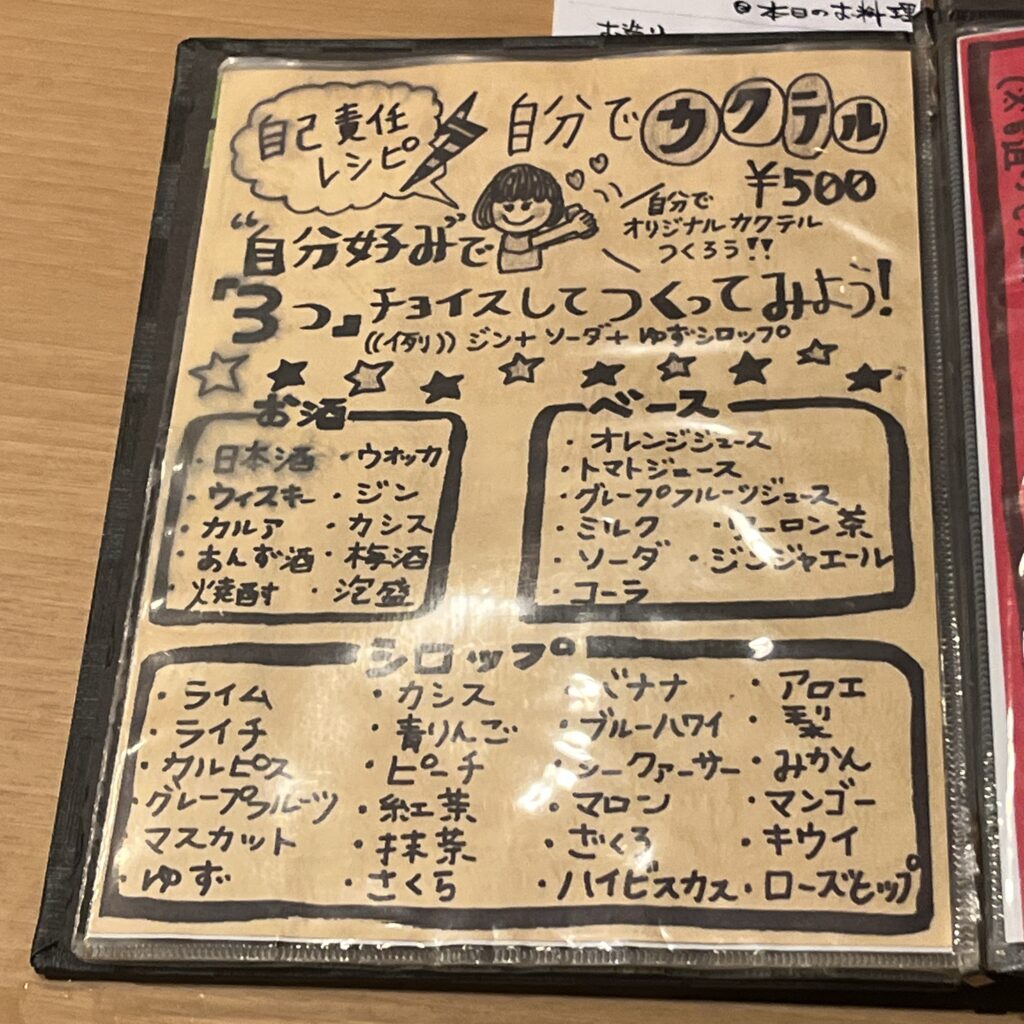 本日のお料理
自己責任
レシピ
自分でカクテル
¥500
自分で
オリジナルカクテル
つくろう!!
"自分好み"で
「3つ」チョイスしてつくってみよう!
((例)) ジン+ソーダ+ゆずシロップ
お酒
・日本酒 ・ウオッカ
・ウィスキー ・ジン
・カルア ・カシス
・あんず酒 ・梅酒
・焼酎 ・泡盛
ベース
・オレンジジュース
・トマトジュース
・グレープフルーツジュース
・ミルク ・ウーロン茶
・ソーダ ・ジンジャエール
・コーラ
シロップ
・ライム ・カシス ・バナナ ・アロエ
・ライチ ・青りんご ・ブルーハワイ ・梨
・カルピス ・ピーチ ・シークァーサー ・みかん
・グレープフルーツ ・紅茶 ・マロン ・マンゴー
マスカット ・抹茶 ・ざくろ ・キウイ
・ゆず ・さくら ・ハイビスカス ・ローズヒップ